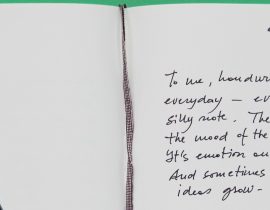 To me, handwri
everyday – ev
silly note. The
the mood of the
It's emotion on
And sometimes
ideas grow-